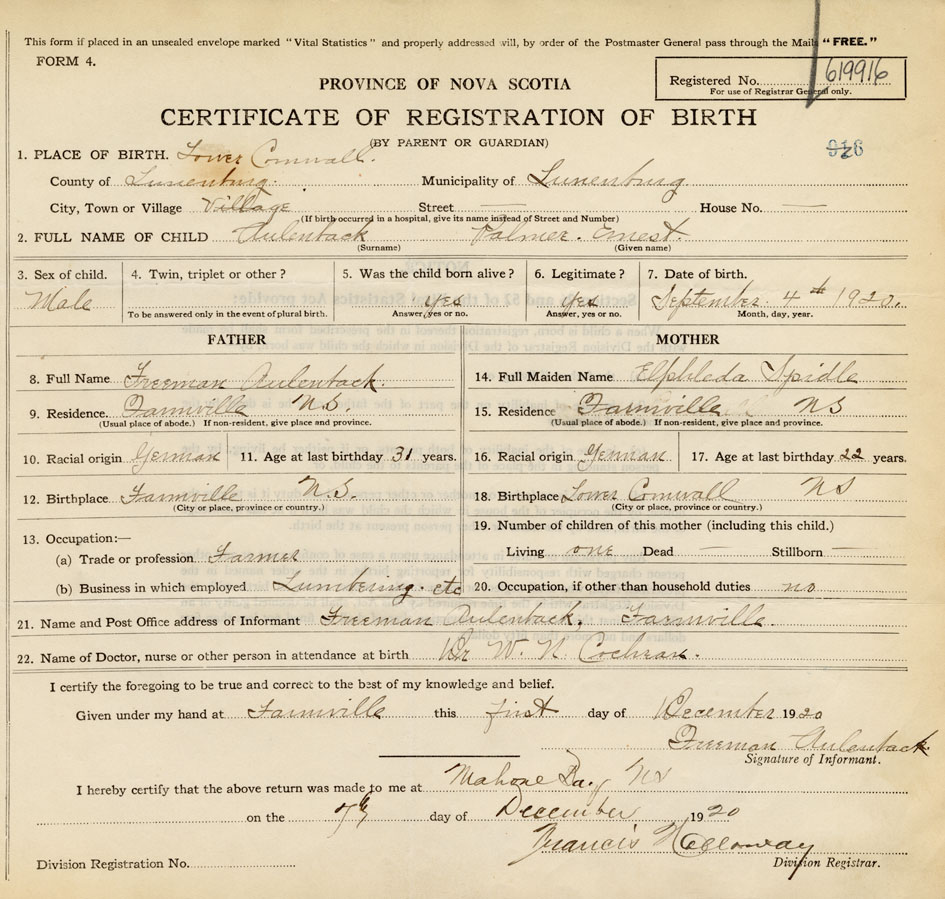 This form if placed in an unsealed envelope marked "Vital Statistics" and properly addressed will, by order of the Postmaster General pass through the Mails "FREE."
FORM 4.
PROVINCE OF NOVA SCOTIA
Registered No. 619916
For use of Registrar General only.
CERTIFICATE OF REGISTRATION OF BIRTH
(BY PARENT OR GUARDIAN)
1. PLACE OF BIRTH. Lower Cornwall.
County of Lunenburg. Municipality of Lunenburg
City, Town or Village Village Street — House No. —
(If birth occurred in a hospital, give its name instead of Street and Number)
2. FULL NAME OF CHILD Aulenback Palmer. Ernest.
(Surname) (Given name)
3. Sex of child. 4. Twin, triplet or other ? 5. Was the child born alive ? 6. Legitimate ? 7. Date of birth.
Male Yes Yes September. 4th 1920.
To be answered only in the event of plural birth. Answer, yes or no. Answer, yes or no. Month, day, year.
FATHER MOTHER
8. Full Name Freeman Aulenback. 14. Full Maiden Name Elphleda Spidle
9. Residence. Farmville N.S. 15. Residence Farmville NS
(Usual place of abode.) If non-resident, give place and province. (Usual place of abode.) If non-resident, give place and province.
10. Racial origin German 11. Age at last birthday 31 years. 16. Racial origin German 17. Age at last birthday 22 years.
12. Birthplace Farmville N.S. 18. Birthplace Lower Cornwall NS
(City or place, province or country.) (City or place, province or country.)
13. Occupation:— 19. Number of children of this mother (including this child.)
(a) Trade or profession Farmer Living one Dead — Stillborn —
(b) Business in which employed Lumbering. etc 20. Occupation, if other than household duties no
21. Name and Post Office address of Informant Freeman Aulenback, Farmville.
22. Name of Doctor, nurse or other person in attendance at birth Dr W. N. Cochran.
I certify the foregoing to be true and correct to the best of my knowledge and belief.
Given under my hand at Farmville this first day of December 1920
Freeman Aulenback
Signature of Informant.
I hereby certify that the above return was made to me at Mahone Bay NS
on the 7th day of December 1920
Francis Holloway
Division Registrar.
Division Registration No.